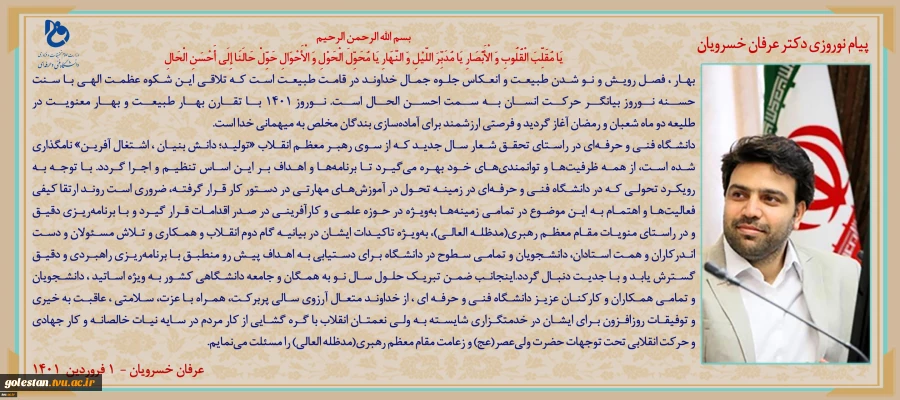 پیام نوروزی دکتر عرفان خسرویان
وزارت علوم، تحقیقات و فناوری
دانشگاه فنی و حرفه‌ای
بسم الله الرحمن الرحیم
یَا مُقَلِّبَ الْقُلُوبِ وَ الْأَبْصَارِ یَا مُدَبِّرَ اللَّیْلِ وَ النَّهَارِ یَا مُحَوِّلَ الْحَوْلِ وَ الْأَحْوَالِ حَوِّلْ حَالَنَا إِلَی أَحْسَنِ الْحَالِ
بهار، فصل رویش و نو شدن طبیعت و انعکاس جلوه جمال خداوند در قامت طبیعت است که تلاقی این شکوه عظمت الهی با سنت
حسنه نوروز بیانگر حرکت انسان به سمت احسن الحال است. نوروز ۱۴۰۱ با تقارن بهار طبیعت و بهار معنویت در
طلیعه دو ماه شعبان و رمضان آغاز گردید و فرصتی ارزشمند برای آماده‌سازی بندگان مخلص به میهمانی خدا است.
دانشگاه فنی و حرفه‌ای در راستای تحقق شعار سال جدید که از سوی رهبر معظم انقلاب «تولید؛ دانش بنیان ، اشتغال آفرین» نامگذاری
شده است، از همه ظرفیت‌ها و توانمندی‌های خود بهره می‌گیرد تا برنامه‌ها و اهداف بر این اساس تنظیم و اجرا گردد. با توجه به
رویکرد تحولی که در دانشگاه فنی و حرفه‌ای در زمینه تحول در آموزش‌های مهارتی در دستور کار قرار گرفته، ضروری است روند ارتقا کیفی
فعالیت‌ها و اهتمام به این موضوع در تمامی زمینه‌ها به‌ویژه در حوزه علمی و کارآفرینی در صدر اقدامات قرار گیرد و با برنامه‌ریزی دقیق
و در راستای منویات مقام معظم رهبری(مدظله العالی)، به‌ویژه تاکیدات ایشان در بیانیه گام دوم انقلاب و همکاری و تلاش مسئولان و دست
اندرکاران و همت استادان، دانشجویان و تمامی سطوح در دانشگاه برای دستیابی به اهداف پیش رو منطبق با برنامه‌ریزی راهبردی و دقیق
گسترش یابد و با جدیت دنبال گردد.اینجانب ضمن تبریک حلول سال نو به همگان و جامعه دانشگاهی کشور به ویژه اساتید ، دانشجویان
و تمامی همکاران و کارکنان عزیز دانشگاه فنی و حرفه ای ، از خداوند متعال آرزوی سالی پربرکت، همراه با عزت، سلامتی ، عاقبت به خیری
و توفیقات روزافزون برای ایشان در خدمتگزاری شایسته به ولی نعمتان انقلاب با گره گشایی از کار مردم در سایه نیات خالصانه و کار جهادی
و حرکت انقلابی تحت توجهات حضرت ولی‌عصر(عج) و زعامت مقام معظم رهبری(مدظله العالی) را مسئلت می‌نمایم.
عرفان خسرویان - ۱ فروردین ۱۴۰۱
golestan.tvu.ac.ir